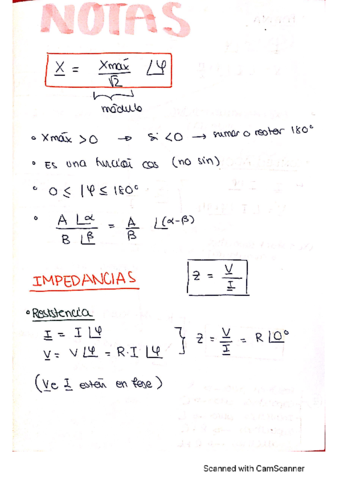 NOTAS
X = Xmáx/√2 ∠φ
módulo
• Xmáx > 0 → si < 0 → sumar o restar 180°
• Es una función cos (no sin)
• 0 ≤ |φ ≤ 180°
• A ∠α / B ∠β = A/B ∠(α-β)
IMPEDANCIAS
Z = V/I
• Resistencia
I = I ∠φ
V = V∠φ = R·I ∠φ } Z = V/I = R ∠0°
(V e I están en fase)
Scanned with CamScanner